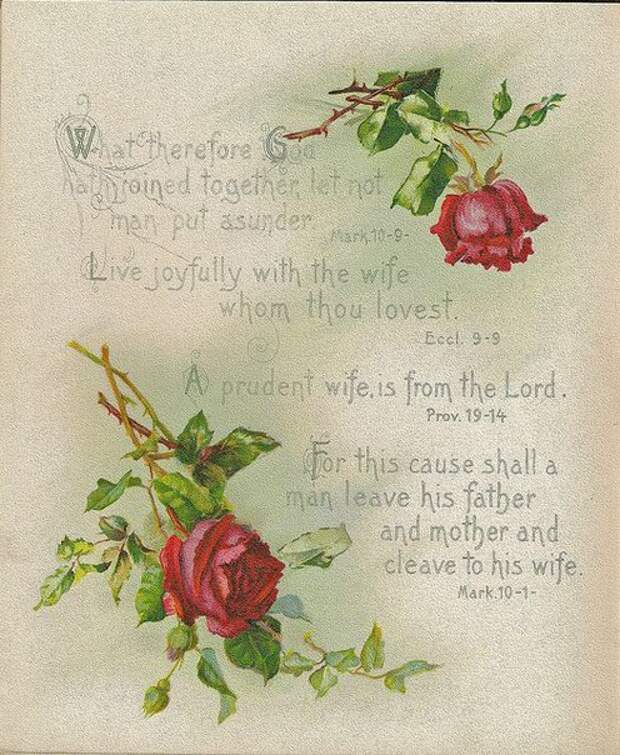 What therefore God
hath joined together, let not
man put asunder.
Mark.10-9-
Live joyfully with the wife
whom thou lovest.
Eccl. 9-9
A prudent wife, is from the Lord.
Prov. 19-14
For this cause shall a
man leave his father
and mother and
cleave to his wife.
Mark.10-1-